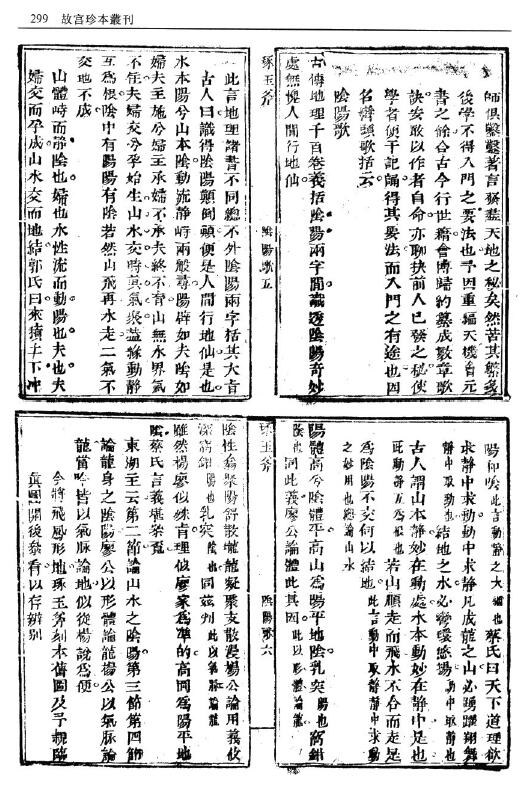 299 故宫珍本叢刊
師俱繫繫著言發盡天地之秘矣然苦其繁多
後學不得入門之要法也予因重編天機會元
書之餘合古今行世籍會博歸約纂成數章歌
訣安敢以作者自命亦聊抉前人已發之秘使
學者便于記誦得其要法而入門之有途也因
名辨頭歌括云
陰陽歌
古傳地理千百卷義括陰陽兩字間識透陰陽奇妙
處無愧人間行地仙
琢玉斧
陰陽歌五
此言地理諸書不同總不外陰陽兩字括其大旨
古人曰識得陰陽顛倒顛便是人間行地仙是也
水本陽兮山本陰動流靜峙兩般尋陽辟如夫陰如
婦夫主施兮婦主承婦不承夫終不育山無水界氣
不任夫婦交兮孕始生山水交時真氣聚蓋緣動靜
互為根陰中有陽陽有陰若然山飛再水走二氣不
交地不成
山體峙而靜陰也婦也水性流而動陽也夫也夫
婦交而孕成山水交而地結郭氏曰來積止下冲
陽仰陰此言動靜之大體也蔡氏曰天下道理欲
求靜中求動動中求靜凡成龍之山必踴躍翔舞
靜中取動也結地之水必彎環悠揚動中取靜也
古人謂山本靜妙在動處水本動妙在靜中是也
此動靜互為根也若山順走而飛水不合而走是
為陰陽不交何以結地此言動中取靜靜中求動
之妙用也總論山水
陽體高兮陰體平高山為陽平地陰乳突陽也窩鉗
陰也同此義廖公論體此其因此以形體論龍
琢玉斧
陰陽歌六
陰性翕聚陽舒散龍龍凝聚支散漫楊公論用義攸
深窩鉗陽也乳突陰也同茲判此以氣脉論龍
雖然楊廖似殊肯理似廖家為準的高岡為陽平地
陰蔡氏言義堪參看
東湖王云第二節論山水之陰陽第三節第四節
論龍身之陰陽廖公以形體論龍楊公以氣脉論
龍當時皆以氣脉論地似從楊說為便
今將飛鳳形地琢玉斧刻本舊圖及予親臨
真圖開後參看以存辨別